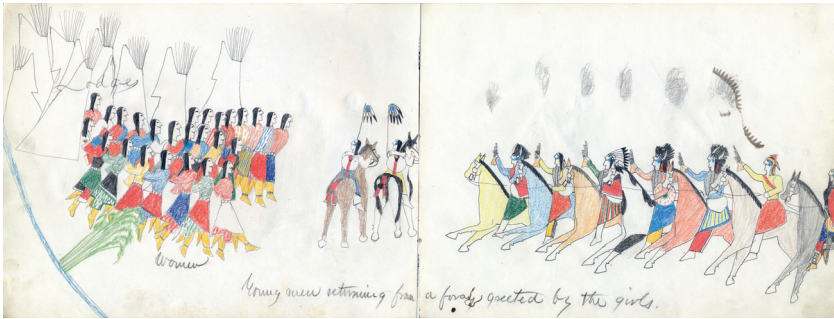 Lodges
Women
Young men returning from a foray greeted by the girls.